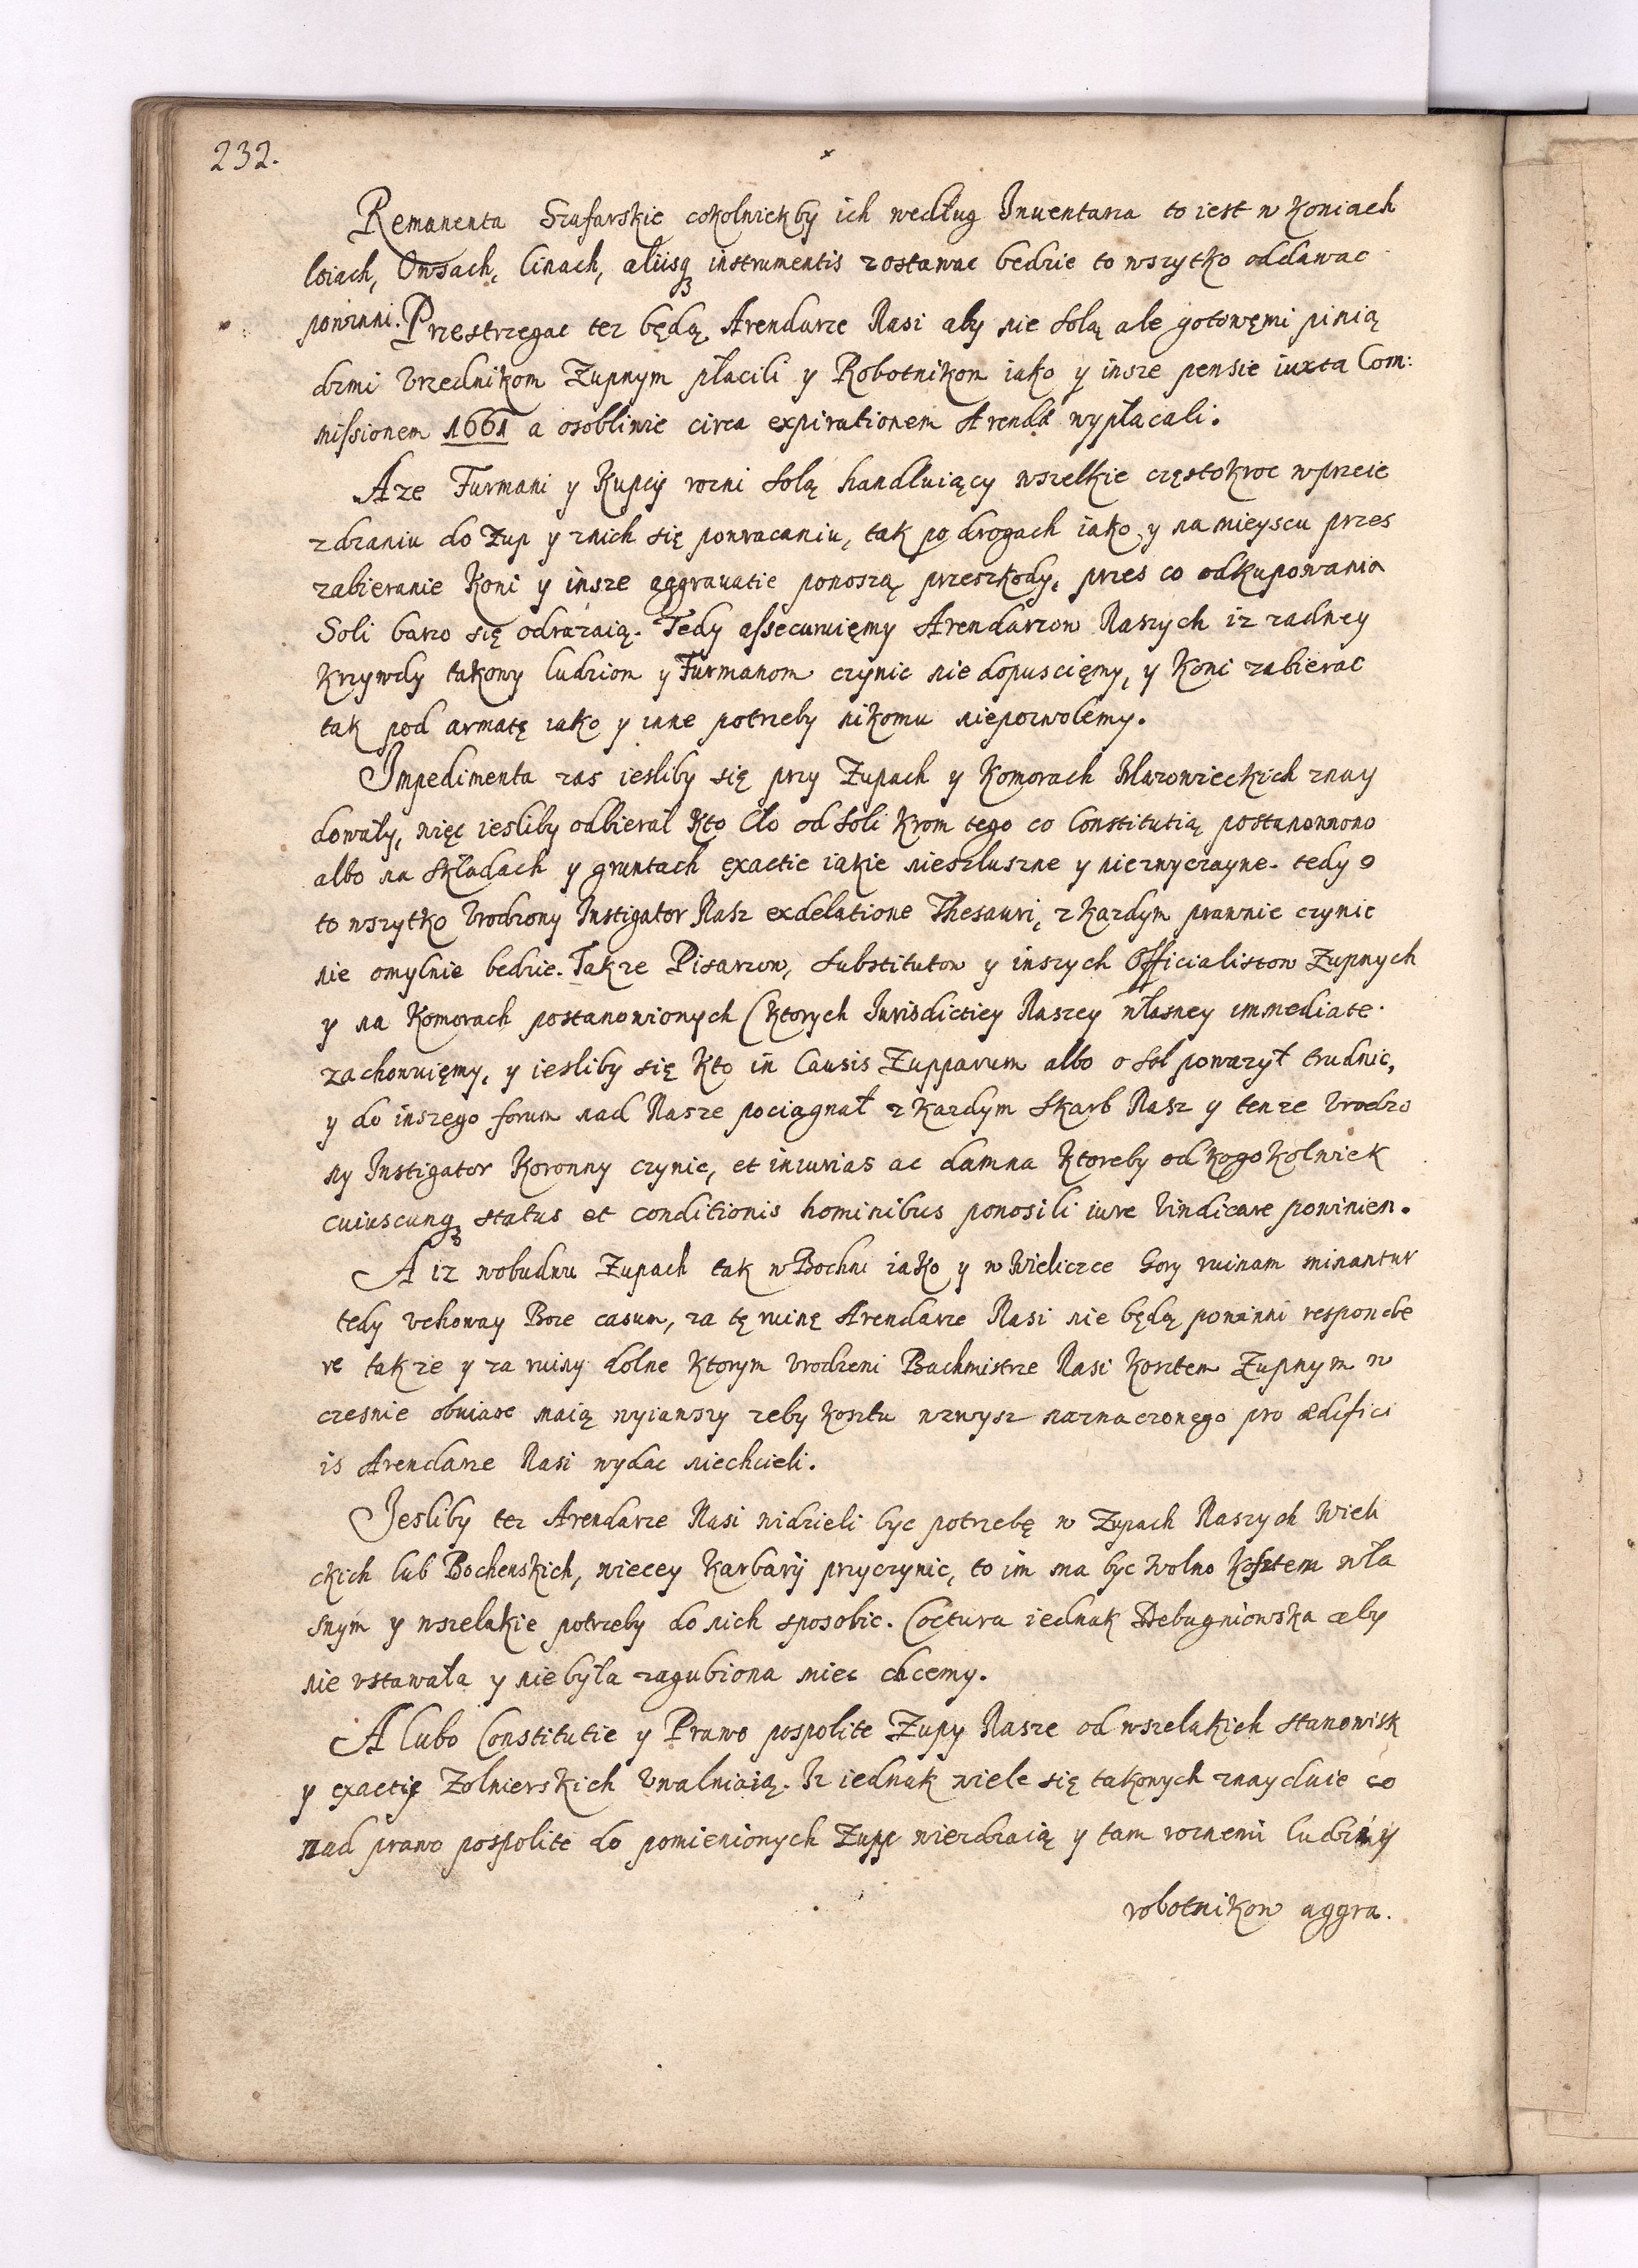 232.
Remanenta Szafarskie cokolwiekby ich według Inuentarza to iest w Koniach
loiach, Owsach, linach, aliisq₃ instrumentis zostawac bedzie to wszytko oddawac
powinni. Przestrzegac tez będą Arendarze Nasi aby nie Solą ale gotowęmi pinią
dzmi Vrzednikom Zupnym płacili y Robotnikom iako y insze pensie iuxta Com:
missionem 1661 a osobliwie circa expirationem Arendȩ wypłacali.
Aze Furmani y Kupcy rozni Solą handluiący wszelkie częstokroc wprzeie
zdzaniu do Zup y znich się powracaniu, tak po drogach iako y na mieyscu przes
zabieranie Koni y insze aggrauatie ponoszą przeszkody, przes co odkupowania
Soli barzo się odrazaią. Tedy assecuruięmy Arendarzow Naszych iz zadney
Krzywdy takowy ludziom y Furmanom czynic nie dopuscięmy, y Koni zabierac
tak pod armatę iako y inne potrzeby nikomu niepozwolemy.
Impedimenta zas iesliby się przy Zupach y Komorach Mazowieckich znay
dowały, więc iesliby odbierał Kto Cło od Soli Krom tego co Constitutią postanowiono
albo na Składach y gruntach exactie iakie niesłuszne y niezwyczayne. tedy o
to wszytko Vrodzony Instigator Nasz exdelatione Thesauri, z Kazdym prawnie czynic
nie omylnie bedzie. Takze Pisarzow, Substitutow y inszych Officialistow Zupnych
y na Komorach postanowionych (Ktorych Iurisdictiey Naszey własney immediate
zachowuięmy, y iesliby się Kto in Causis Zupparum albo o Sol powazył trudnic,
y do inszego forum nad Nasze pociągnał z Kazdym Skarb Nasz y tenze Vrodzo
ny Instigator Koronny czynic, et iniurias ac damna Ktoreby od KogoKolwiek
cuiuscunq₃ status et conditionis hominibus ponosili iure Vindicare powinien.
A iz wobudwu Zupach tak w Bochni iako y w Wieliczce Gory ruinam minantur
tedy vchoway Boze casum, za tę ruinę Arendarze Nasi nie będą powinni responde
re takze y za ruiny dolne Ktorym Vrodzeni Bachmistrze Nasi Kosztem Zupnym w
czesnie obuiare maią wyiawszy zeby Kosztu wzwysz naznaczonego pro ædifici
is Arendarze Nasi wydac niechcieli.
Iesliby tez Arendarze Nasi widzieli byc potrzebę w Zupach Naszych Wieli
ckich lub Bochenskich, wiecey Karbarij przyczynic, to im ma byc Wolno Kosztem wła
snym y wszelakie potrzeby do nich sposobic. Coctura iednak Debugniowska aby
nie vstawała y nie była zagubiona miec chcemy.
A lubo Constitutie y Prawo pospolite Zupy Nasze od wszelakich Stanowisk
y exactię Zolnierskich Vwalniaią. Iz iednak wiele się takowych znayduie co
nad prawo pospolite do pomienionych Zupp wiezdzaią y tam roznemi ludzmi y
robotnikow aggra.